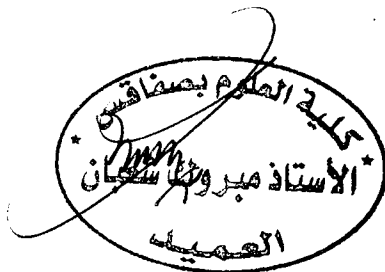 كلية العلوم بصفاقس
الأستاذ مبروك
العميد